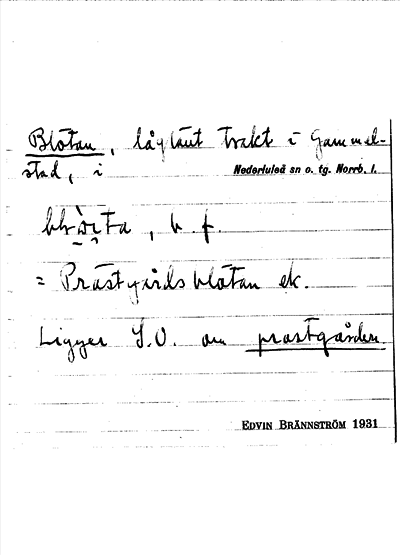 Blötan, låglänt trakt i Gammel-
stad, i Nederluleå sn o. tg. Norrb. l.
b. f.
= Prästgårdsblötan ek.
Ligger S.O. om prästgården.
EDVIN BRÄNNSTRÖM 1931